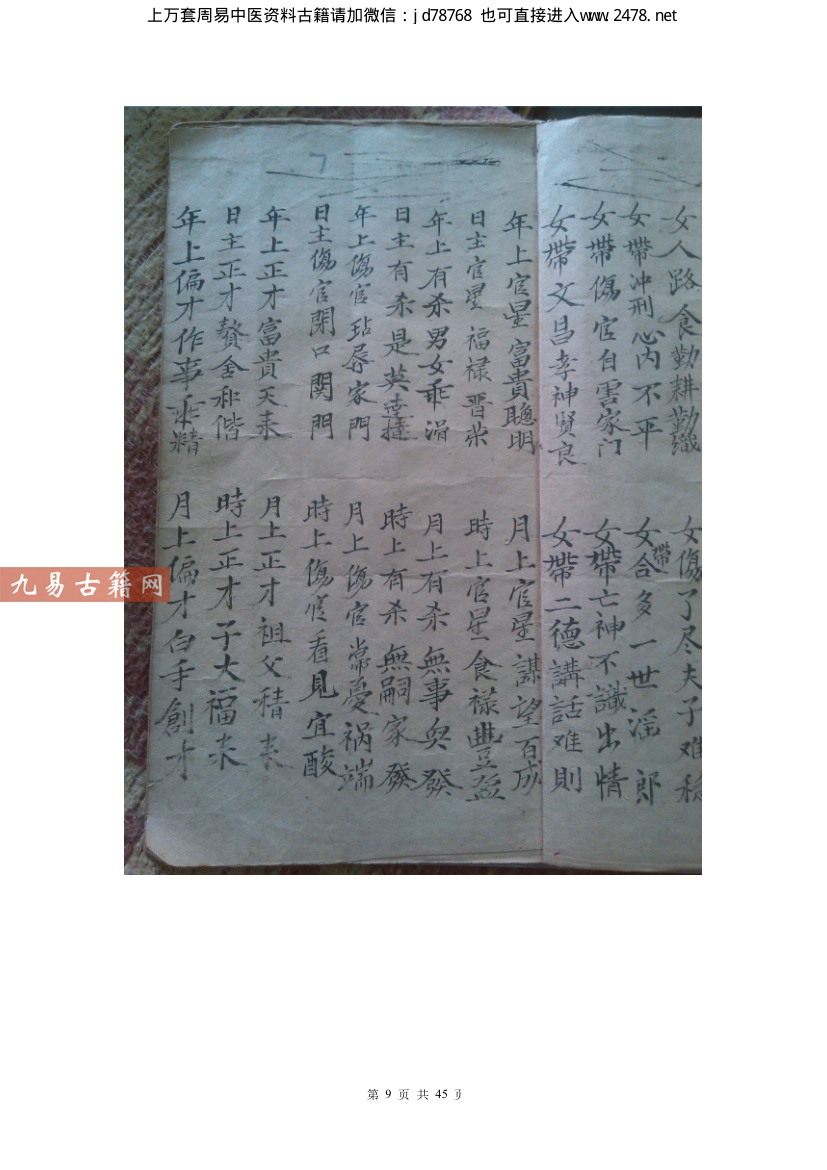 上万套周易中医资料古籍请加微信：jd78768 也可直接进入www.2478.net
女人路食勤耕勤織 女傷了尽夫子难
女帶沖刑心内不平 女帶合多一世滛郎
女帶傷官自害家门 女帶亡神不識出情
女帶文昌孝神賢良 女帶二德講話难則
年上官星富貴聰明 月上官星謀望百成
日主官星福禄晋荣 時上官星食禄豊盈
年上有杀男女乖滑 月上有杀無事與發
日主有杀是英達 時上有杀無嗣家發
年上傷官玷辱家門 月上傷官常憂祸端
日主傷官閉口関門 時上傷官看見宜酸
年上正才富貴天来 月上正才祖父積来
日主正才贅舍和偕 時上正才子大福来
年上偏才作事乖精 月上偏才白手創才
九易古籍网
第 9 页 共 45 页